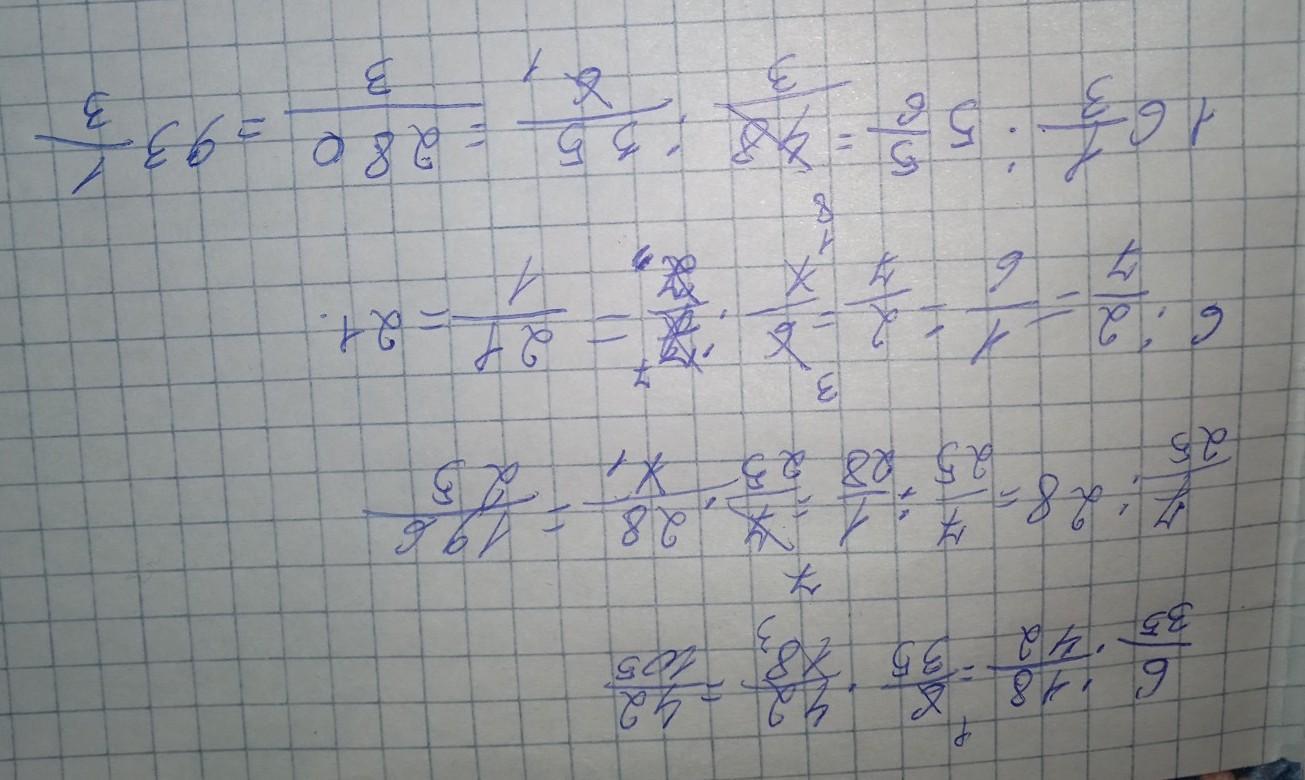 6/35 : 18/42 = 6/35 · 42/18 = 42/105
7/25 : 28 = 7/25 : 1/28 = 7/25 · 28/1 = 196/25
6 : 2/7 = 1/6 : 2/7 = 6/1 · = 21/1 = 21.
16 1/3 : 5 5/6 = 48/3 : 35/6 = 280/3 = 93 1/3